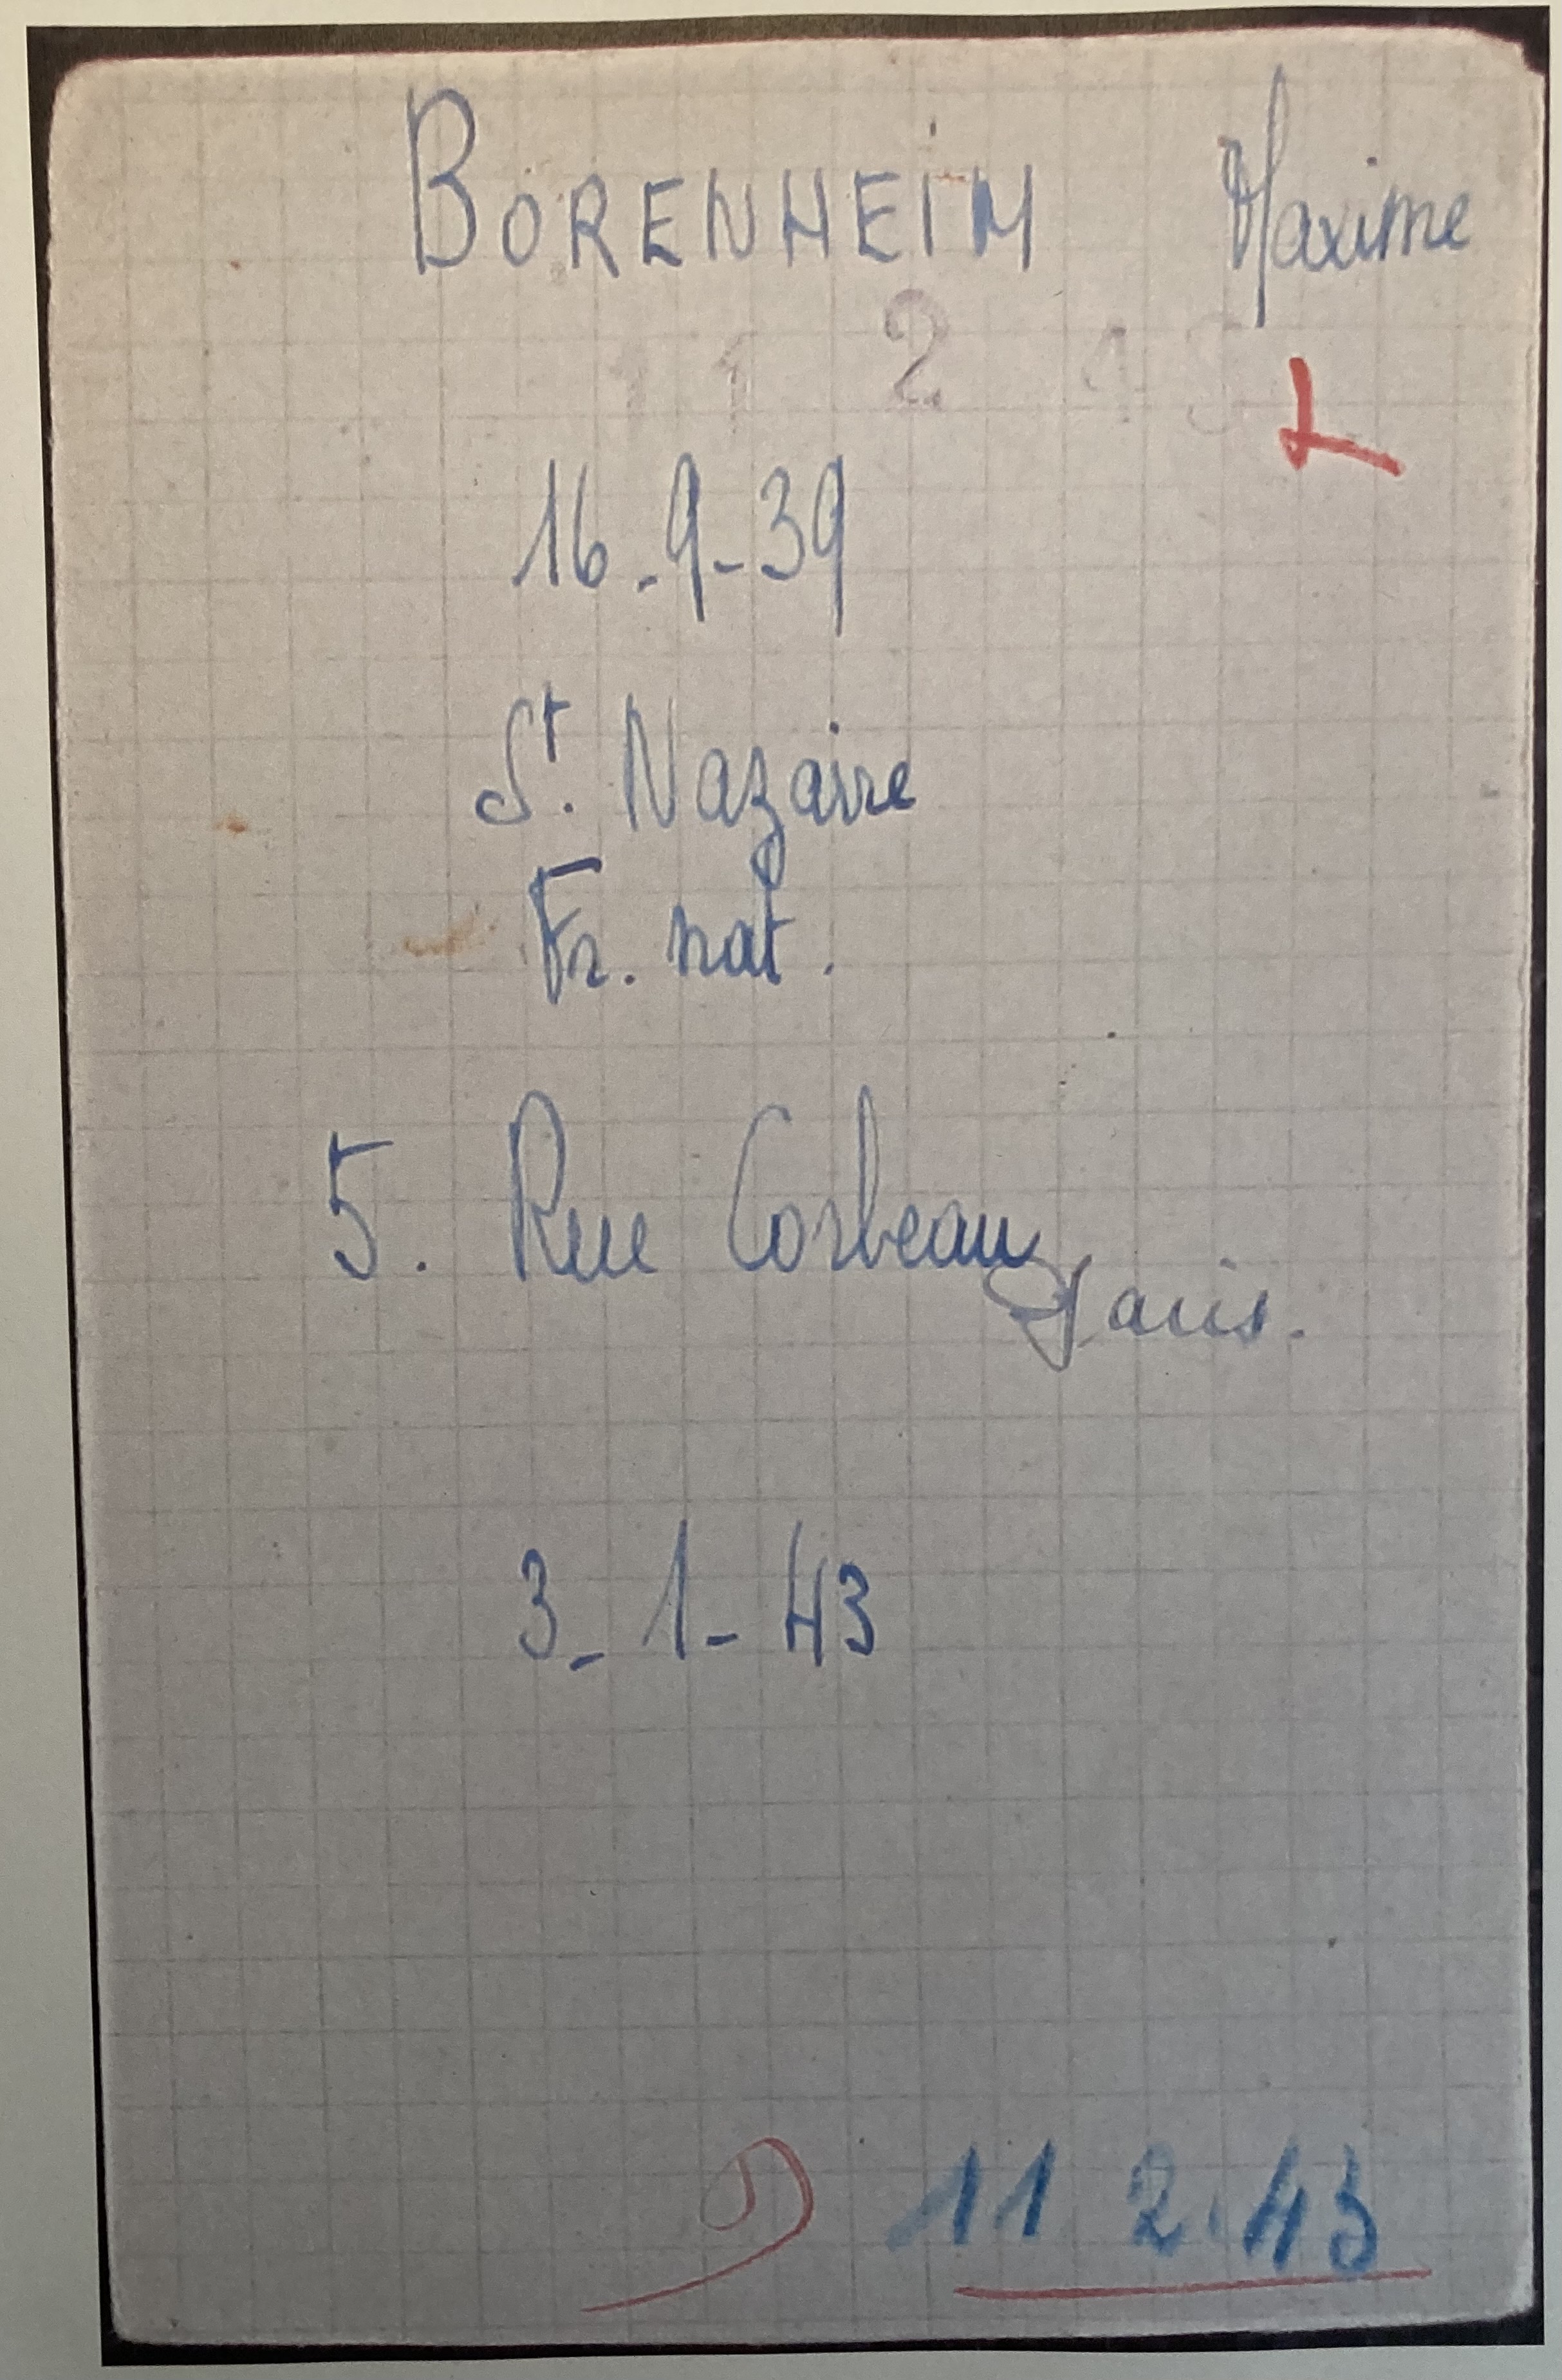 BORENHEIM Maxime
11 2 43
16-9-39
St. Nazaire
Fr. nat.
5. Rue Corbeau
Paris.
3-1-43
9 11 2.43